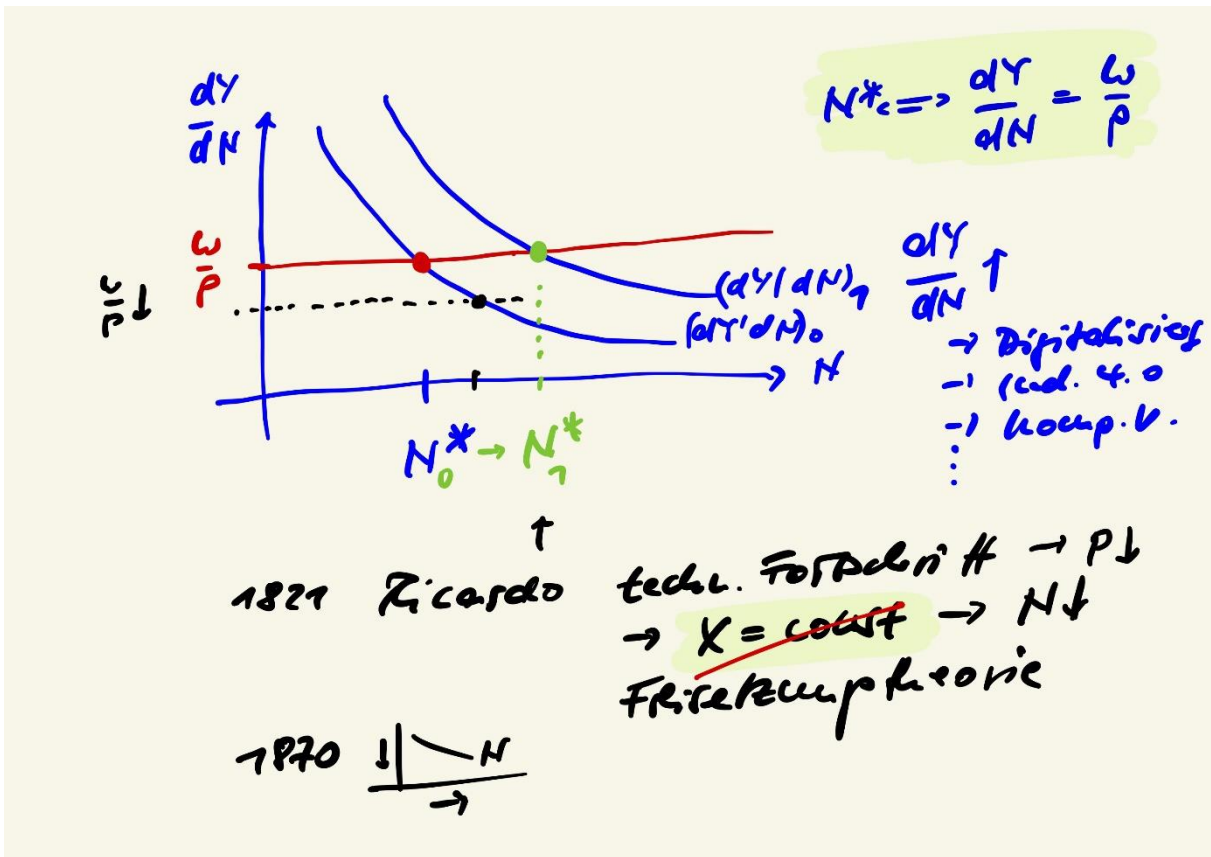 dY/dN
N* <=> dY/dN = w/p
w/p
w/p ↓
(dY/dN)₁
(dY/dN)₀
N
dY/dN ↑
→ Digitalisierg
→ Ind. 4.0
→ komp. V.
⋮
N₀* → N₁*
↑
1821 Ricardo techn. Fortschritt → P↓
→ X = const → N↓
Freisetzungstheorie
1870 ↓ N
→